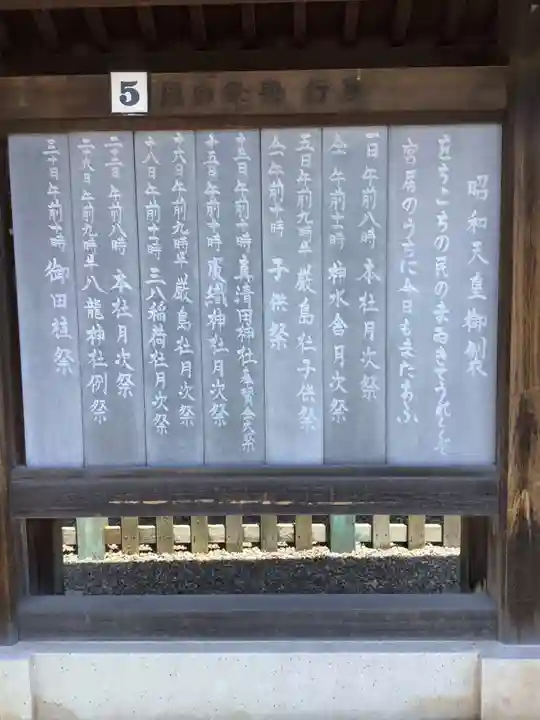 5
昭和天皇御製
をちこちの民のまゐきてうれしくぞ
宮居のうちに今日もまたあふ
一日午前八時 本社月次祭
仝 午前十一時 神水舎月次祭
五日午前九時半 厳島社子供祭
仝 午前十時 子供祭
十三日午前十時 真清田神社奉賛会大祭
十五日午前十時 服織神社月次祭
十六日午前九時半 厳島社月次祭
十八日午前十時 三八稲荷社月次祭
二十三日午前八時 本社月次祭
二十八日午前九時半 八龍神社例祭
三十日午前十時 御田植祭